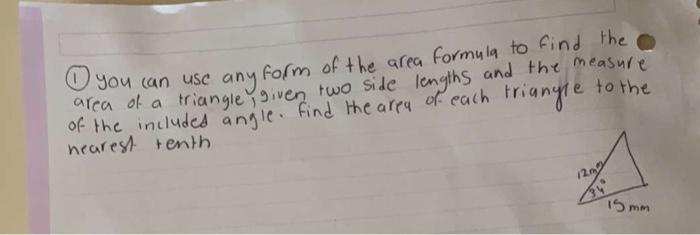 ① you can use any form of the area formula to find the
area of a triangle, given two side lengths and the measure
of the included angle. find the area of each triangle to the
nearest tenth
12mm
34°
15 mm